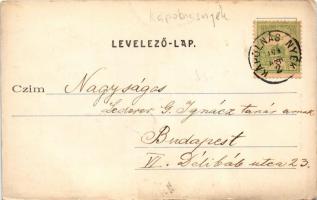 Kápolnásnyék
LEVELEZŐ-LAP.
KÁPOLNÁS-NYÉK
Czim Nagyságos
Lederer G. Ignácz tanár urnak
Budapest
VI. Délibáb utca 23.